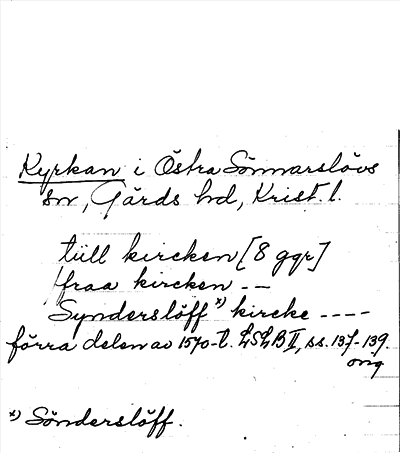 Kyrkan i Östra Sönnarslövs
sn, Gärds hd, Krist. l.
tiill kircken [8 ggr]
fraa kircken --
Synderslöff x) kircke ----
förra delen av 1570-t. LSLB II, ss. 137-139.
orig
x) Sönderslöff.